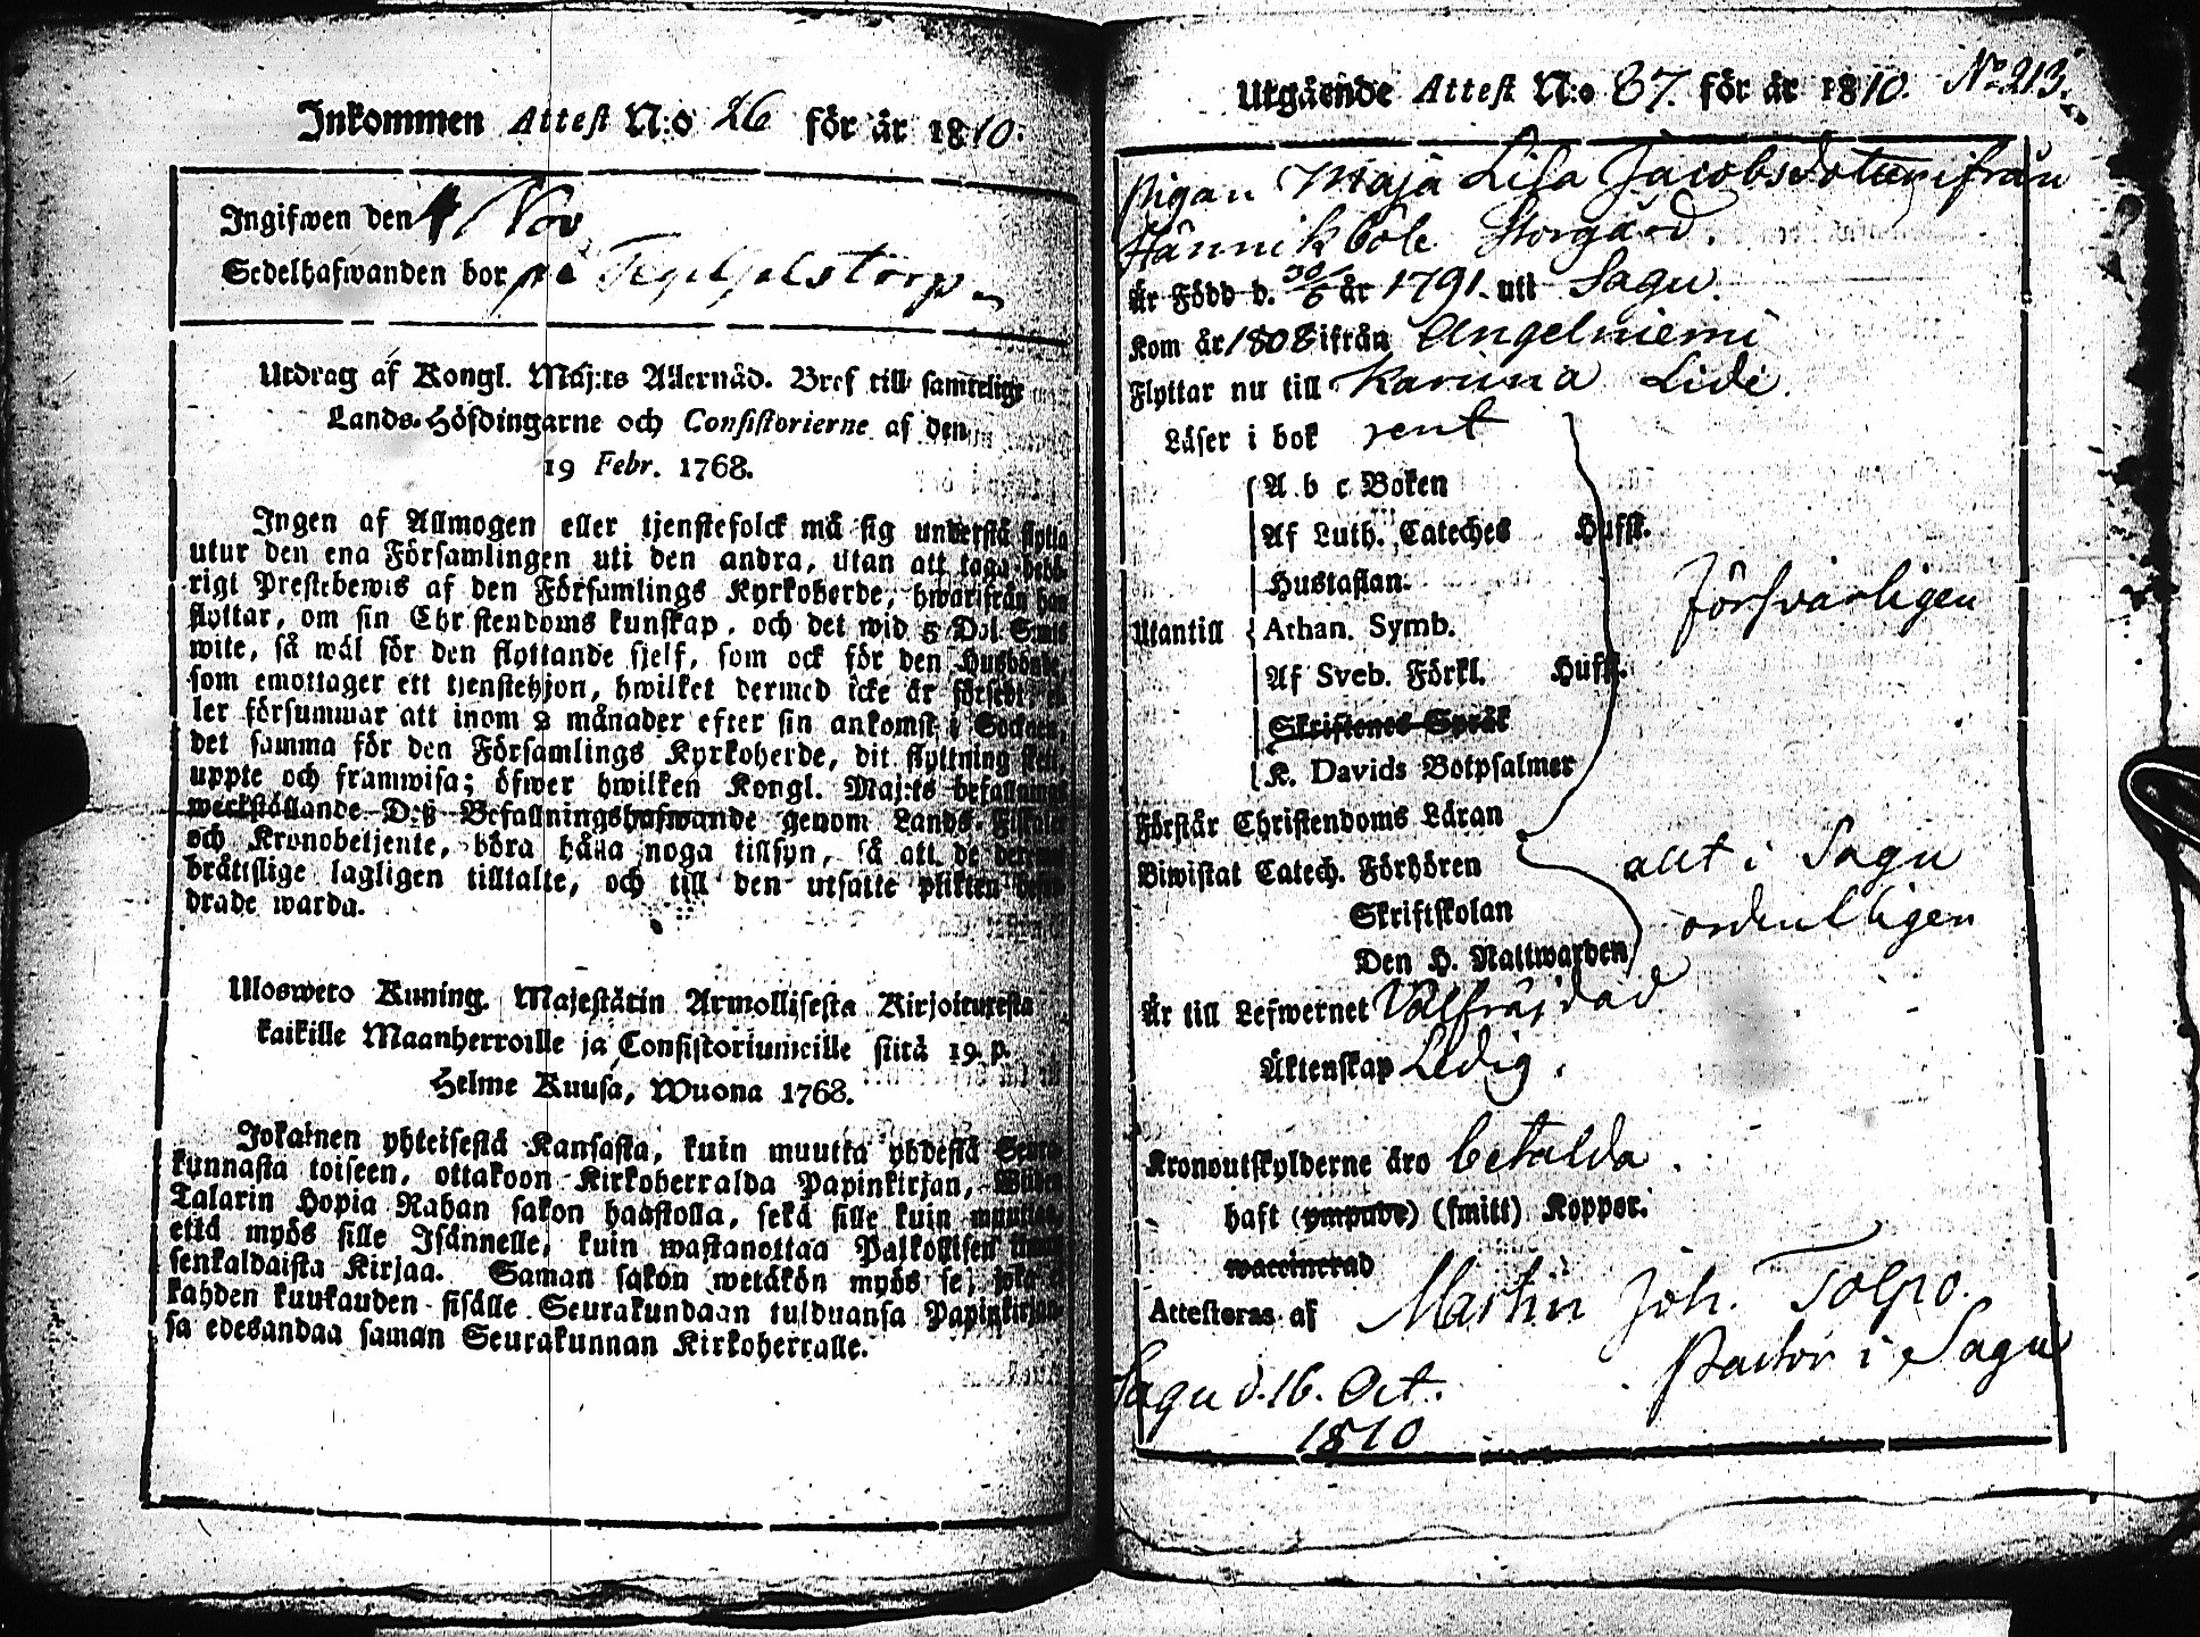 Inkommen Attest N:o 26 för år 1810.
Ingifwen den 4 Nov
Sedelhafwanden bor på
Utdrag af Kongl. Maj:ts Allernåd. Bref till samtelige
Lands-Höfdingarne och Consistorierne af den
19 Febr. 1768.
Ingen af Allmogen eller tjenstefolck må sig understå flytta
utur den ena Församlingen uti den andra, utan att taga behö-
rigt Prestebewis af den Församlings Kyrkoherde, hwarifrån han
flyttar, om sin Christendoms kunskap, och det wid 5 Dal. S:mts
wite, så wäl för den flyttande sjelf, som ock för den Husbonde,
som emottager ett tjenstehjon, hwilket dermed icke är försedt el-
ler försummar att inom 2 månader efter sin ankomst i Socknen,
det samma för den Församlings Kyrkoherde, dit flyttning sker,
uppte och framwisa; öfwer hwilken Kongl. Maj:ts befallnings
werkställande Deß Befallningshafwande genom Lands-Fiskaler
och Kronobetjente, böra hålla noga tillsyn, så att de
brättslige lagligen tilltalte, och till den utsatte plikten
drade warda.
Uloswето Kuning. Majestätin Armollisesta Kirjoituxesta
kaikille Maanherroille ja Consistoriumeille siitä 19. p.
Helme Kuusa, Wuona 1768.
Jokainen yhteisestä Kansasta, kuin muutta yhdestä Seura-
kunnasta toiseen, ottakoon Kirkoherralda Papinkirjan, Wiiden
Talarin Hopia Rahan sakon haastolla, sekä sille kuin muuttaa,
että myös sille Isännelle, kuin wastanottaa Palkollisen ilman
senkaldaista Kirjaa. Saman sakon wetäkön myös se, joka ei
kahden kuukauden sisälle Seurakundaan tulduansa Papinkirjan-
sa edesandaa saman Seurakunnan Kirkoherralle.
Utgående Attest N:o 87. för år 1810. No 213.
Pigan Maja Lisa Jacobsdotter ifrån
Hännikböle Storgård.
Är Född d. 30/6 år 1791. uti Sagu.
Kom år 1808 ifrån Angelniemi
Flyttar nu till Karuna Lidi.
Läser i bok rent
A b c Boken
Af Luth. Cateches Hufst.
Hustaflan.
Utantill Athan. Symb.
Försvarligen
Af Sveb. Förkl. Hufst.
Skriftenes Språk
K. Davids Botpsalmer
Förstår Christendoms Läran
Biwistat Catech. Förhören allt i Sagu
Skriftskolan ordentligen
Den H. Nattwarden
Är till Lefwernet Välfräjdad
Äktenskap Ledig.
Kronoutskylderne äro betalda.
haft (ympade) (smitt) Koppor.
waccinerad
Attesteras af Martin Joh. Tolpo.
Pastor i Sagu
Sagu d. 16. Oct.
1810